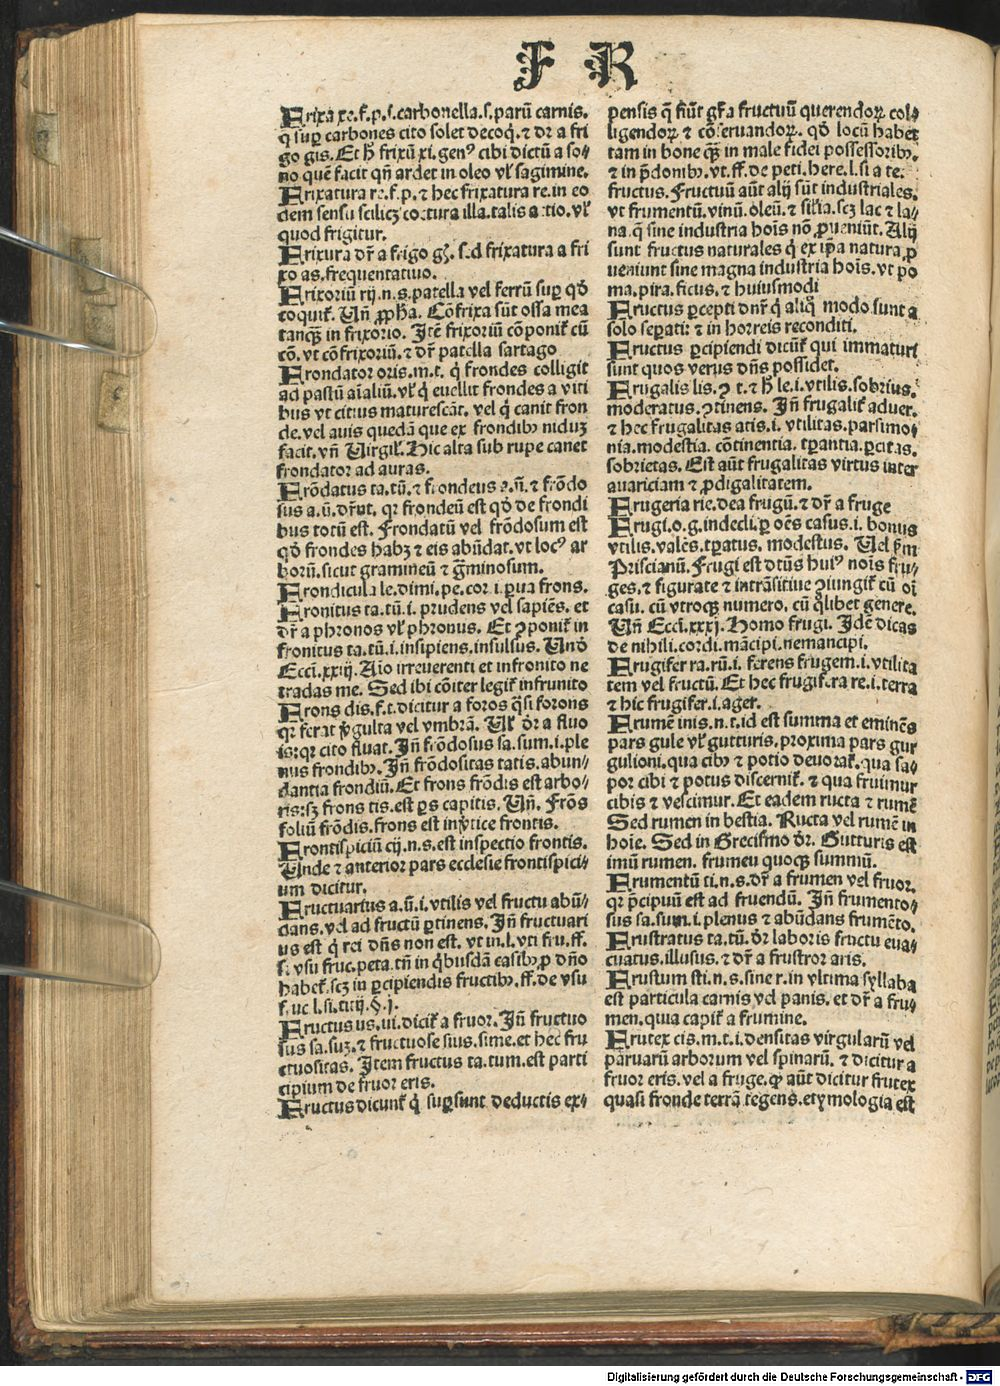 F R
Frixa xe.f.p.i.carbonella.s.parū carnis.
q suꝑ carbones cito solet decoq̄.⁊ dr̄ a fri
go gis. Et h̄ frixū xi.genꝰ cibi dictū a so⸗
no quē facit qn̄ ardet in oleo vl̓ sagimine.
Frixatura re.f.p.⁊ hec frixatura re.in eo
dem sensu scilicꝫ coctura illa.talis actio.vl̓
quod frigitur.
Frixura dr̄ a frigo gꝫ. s.d frixatura a fri
xo as.frequentatiuo.
Frixoriū rij.n.s.patella vel ferrū suꝑ qð
coquit̄. Vn̄ ꝓpha. Cōfrixa sūt ossa mea
tanqꝫ in frixorio. Itē frixoriū cōponit̄ cū
cō.vt cōfrixoriū.⁊ dr̄ patella sartago
Frondator oris.m.t. q̇ frondes colligit
ad pastū aīaliū.vl̓ q̇ euellit frondes a viti
bus vt citius maturescāt. vel q̇ canit fron
de.vel auis quedā que ex frondibꝫ niduꝫ
facit.vn̄ Virgil̓. Hic alta sub rupe canet
frondator ad auras.
Frōdatus ta.tū.⁊ frondeus a.ū.⁊ frōdo
sus a.ū.dr̄ut. qꝛ frondeū est qð de frondi
bus totū est. Frondatū vel frōdosum est
qð frondes habꝫ ⁊ eis abūdat.vt locꝰ ar
borū.sicut gramineū ⁊ g̅minosum.
Frondicula le.dimi.pe.cor.i.ꝑua frons.
Fronitus ta.tū.i.prudens vel sapiēs. et
dr̄ a phronos vl̓ phronus. Et ↄponit̄ in
fronitus ta.tū.i.insipiens.insulsus. Vnð
Ecci.xxiij.Aīo irreuerenti et infronito ne
tradas me. Sed ibi cōiter legit̄ infrunito
Frons dis.f.t.dicitur a foros q̄si forons
qꝛ ferat v̓gulta vel vmbrā. Vl̓ dr̄ a fluo
is:qꝛ cito fluat. Jn̄ frōdosus sa.sum.i.ple
nus frondibꝫ. Jn̄ frōdositas tatis.abun⸗
dantia frondiū. Et frons frōdis est arbo⸗
ris:sꝫ frons tis.est ꝑs capitis. Vn̄. Frōs
foliū frōdis.frons est in v̓tice frontis.
Frontispiciū cij.n.s.est inspectio frontis.
Vnde ⁊ anterior pars ecclesie frontispici⸗
um dicitur.
Fructuarius a.ū.i.vtilis vel fructu abū⸗
dans.vel ad fructū ꝑtinens. Jn̄ fructuari
us est q̇ rei dn̄s non est. vt in.l.vti fru.ff.
si vsu fruc.peta.tn̄ in q̇busdā casibꝫ ꝓ dn̄o
habet̄.scꝫ in ꝑcipiendis fructibꝫ.ff.de vsu
fruc l.si.titij.§.j.
Fructus us.ui.dicit̄ a fruor. Jn̄ fructuo
sus sa.suꝫ.⁊ fructuose sius.sime.et hec fru
ctuositas. Item fructus ta.tum.est parti
cipium de fruor eris.
Fructus dicunt̄ q̇ suꝑsunt deductis ex⸗
pensis q̄ fiūt gr̄a fructuū querendoꝝ col⸗
ligendoꝝ ⁊ cōseruandoꝝ. qð locū habet
tam in bone qꝫ in male fidei possessoribꝫ.
⁊ in p̄donibꝫ.vt.ff.de peti.here.l.si a te.
fructus. Fructuū aūt alij sūt industriales.
vt frumentū.vinū.oleū.⁊ sil̓ia.scꝫ lac ⁊ la⸗
na.q̄ sine industria hoīs nō ꝓueniūt. Alij
sunt fructus naturales q̇ ex ip̄a natura ꝓ
ueniunt sine magna industria hoīs.vt po
ma.pira.ficus.⁊ huiusmodi
Fructus ꝑcepti dnr̄ q̇ aliq̊ modo sunt a
solo seꝑati: ⁊ in horreis reconditi.
Fructus ꝑcipiendi dicūt̄ qui immaturi
sunt quos verus dn̄s possidet.
Frugalis lis.ↄ t.⁊ h̄ le.i.vtilis.sobrius.
moderatus.ↄtinens. Jn̄ frugalit̄ aduer.
⁊ hec frugalitas atis.i. vtilitas.parsimo⸗
nia.modestia. cōtinentia. tꝑantia.ꝑcitas.
sobrietas. Est aūt frugalitas virtus inter
auariciam ⁊ ꝓdigalitatem.
Frugeria rie.dea frugū.⁊ dr̄ a fruge
Frugi.o.g.indecli.ꝑ oēs casus.i. bonus
vtilis.valēs.tꝑatus. modestus. Vel ẜm
Priscianū. Frugi est dtūs huiꝰ noīs fru⸗
ges.⁊ figurate ⁊ intrāsitiue ↄiungit̄ cū oī
casu. cū vtroqꝫ numero. cū q̇libet genere.
Vn̄ Ecci.xxxj. Homo frugi. Idē dicas
de nihili.cordi.mācipi.nemancipi.
Frugifer ra.rū.i. ferens frugem.i.vtilita
tem vel fructū. Et hec frugifera re.i.terra
⁊ hic frugifer.i.ager.
Frumē inis.n.t.id est summa et eminēs
pars gule vl̓ gutturis.proxima pars gur
gulioni.qua cibꝰ ⁊ potio deuorat̄.qua sa⸗
por cibi ⁊ potus discernit̄. ⁊ qua fruimur
cibis ⁊ vescimur. Et eadem ructa ⁊ rumē
Sed rumen in bestia. Ructa vel rumē in
hoīe. Sed in Grecismo dr̄. Gutturis est
imū rumen. frumeu quoqꝫ summū.
Frumentū ti.n.s.dr̄ a frumen vel fruor.
qꝛ p̄cipuū est ad fruendū. Jn̄ frumento⸗
sus sa.sum.i.plenus ⁊ abūdans frumēto.
Frustratus ta.tū. dr̄ laboris fructu eua⸗
cuatus.illusus.⁊ dr̄ a frustror aris.
Frustum sti.n.s.sine r.in vltima syllaba
est particula carnis vel panis. et dr̄ a fru⸗
men.quia capit̄ a frumine.
Frutex cis.m.t.i.densitas virgularū vel
paruarū arborum vel spinarū. ⁊ dicitur a
fruor eris.vel a fruge.qꝫ aūt dicitur frutex
quasi fronde terrā tegens.etymologia est
Digitalisierung gefördert durch die Deutsche Forschungsgemeinschaft - DFG